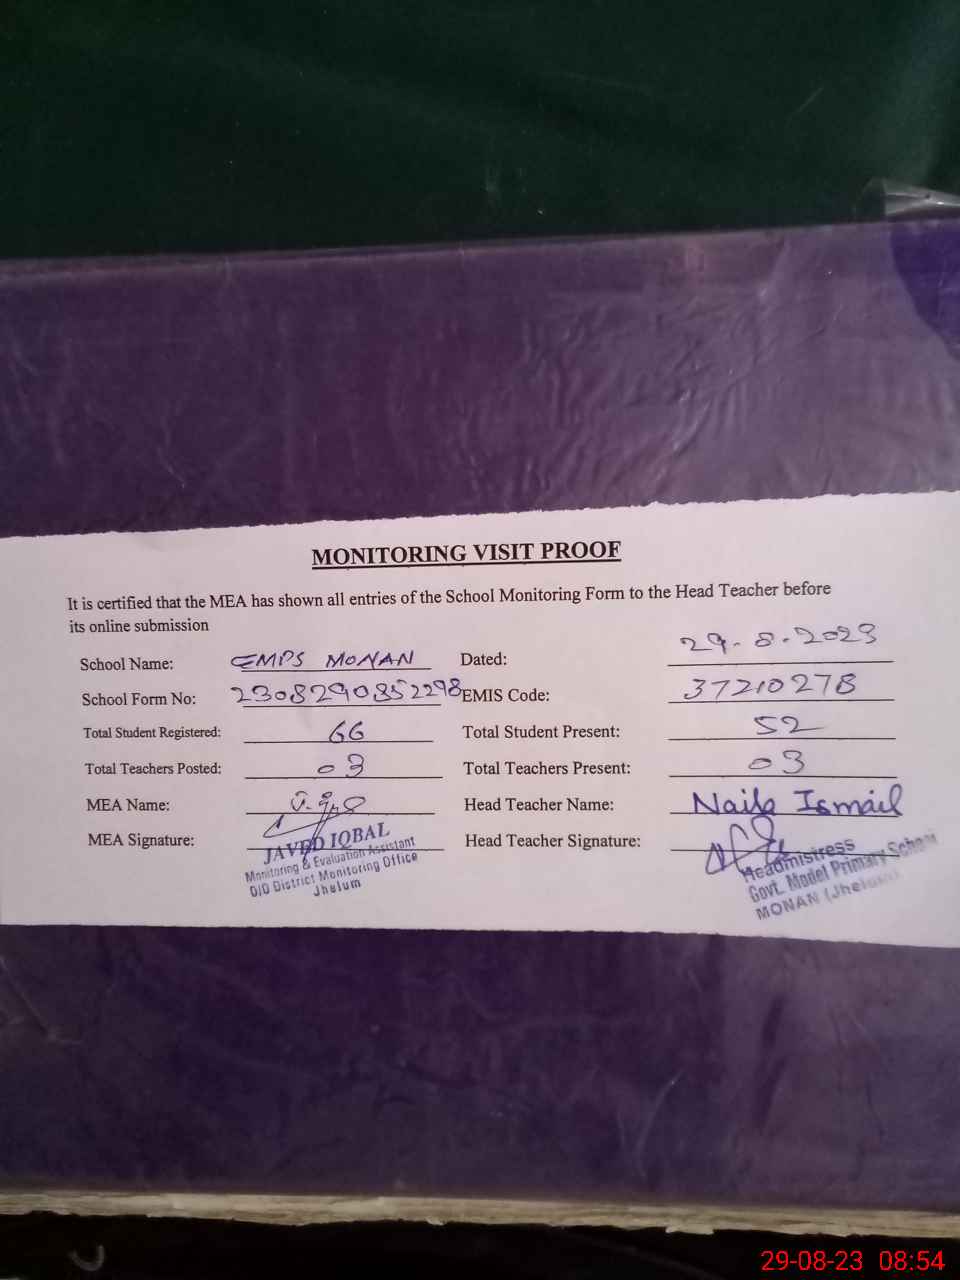 MONITORING VISIT PROOF
It is certified that the MEA has shown all entries of the School Monitoring Form to the Head Teacher before
its online submission
School Name: GMPS MONAN Dated: 29-8-2023
School Form No: 2308290852298 EMIS Code: 37210278
Total Student Registered: 66 Total Student Present: 52
Total Teachers Posted: 03 Total Teachers Present: 03
MEA Name: Head Teacher Name: Naila Ismail
MEA Signature: Head Teacher Signature:
JAVED IQBAL
Monitoring & Evaluation Assistant
O/O District Monitoring Office
Jhelum
Headmistress
Govt. Model Primary School
MONAN (Jhelum)
29-08-23 08:54